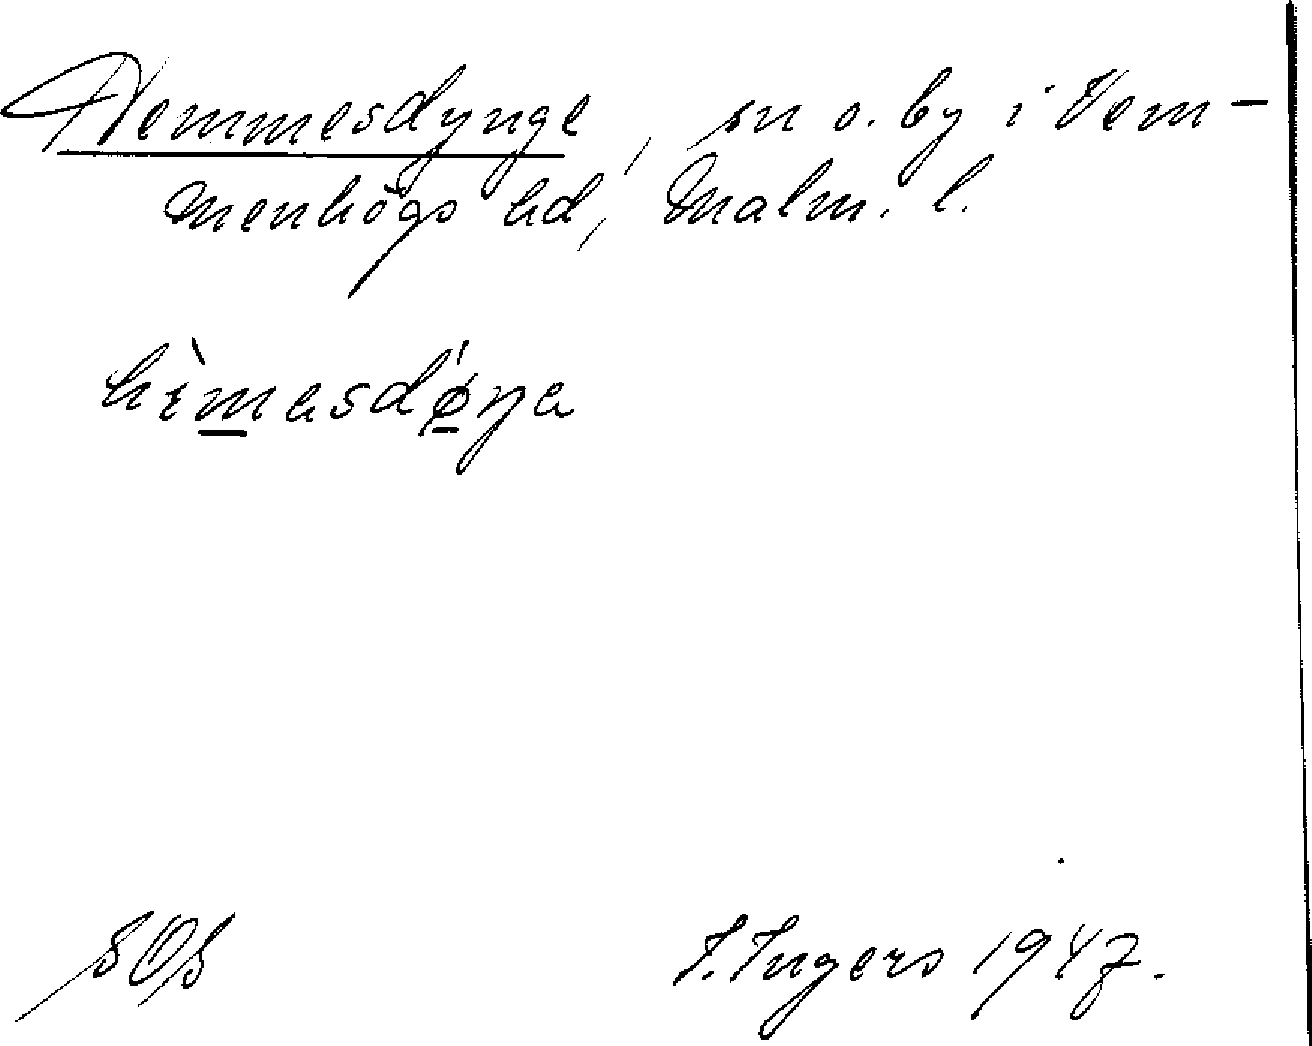 Hemmesdynge, sn o. by i Vem-
menhögs hd, Malm. l.
hèmasdǿŋa
SOS I. Ingers 1947.